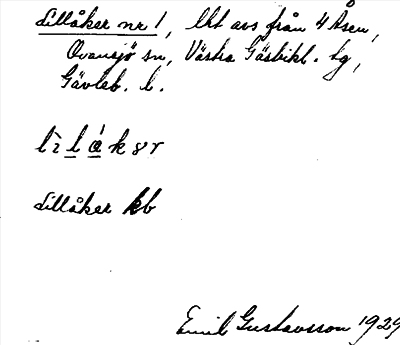 Lillåker nr 1, lht avs från 4 Åsen,
Ovansjö sn, Västra Gästrikl. tg,
Gävleb. l.
lìlákər
Lillåker kb
Emil Gustavsson 1929